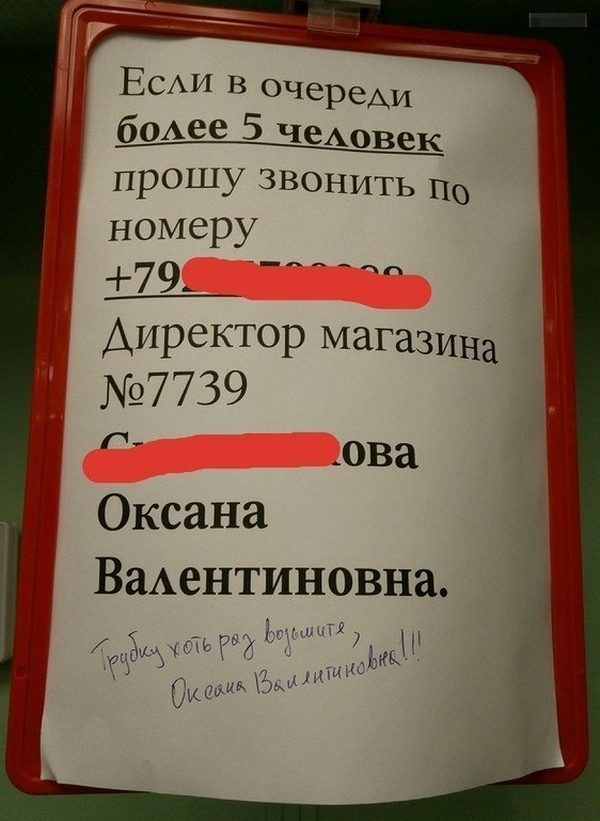 Если в очереди
более 5 человек
прошу звонить по
номеру
+79
Директор магазина
№7739
ова
Оксана
Валентиновна.
Трубку хоть раз возьмите,
Оксана Валентиновна!!!